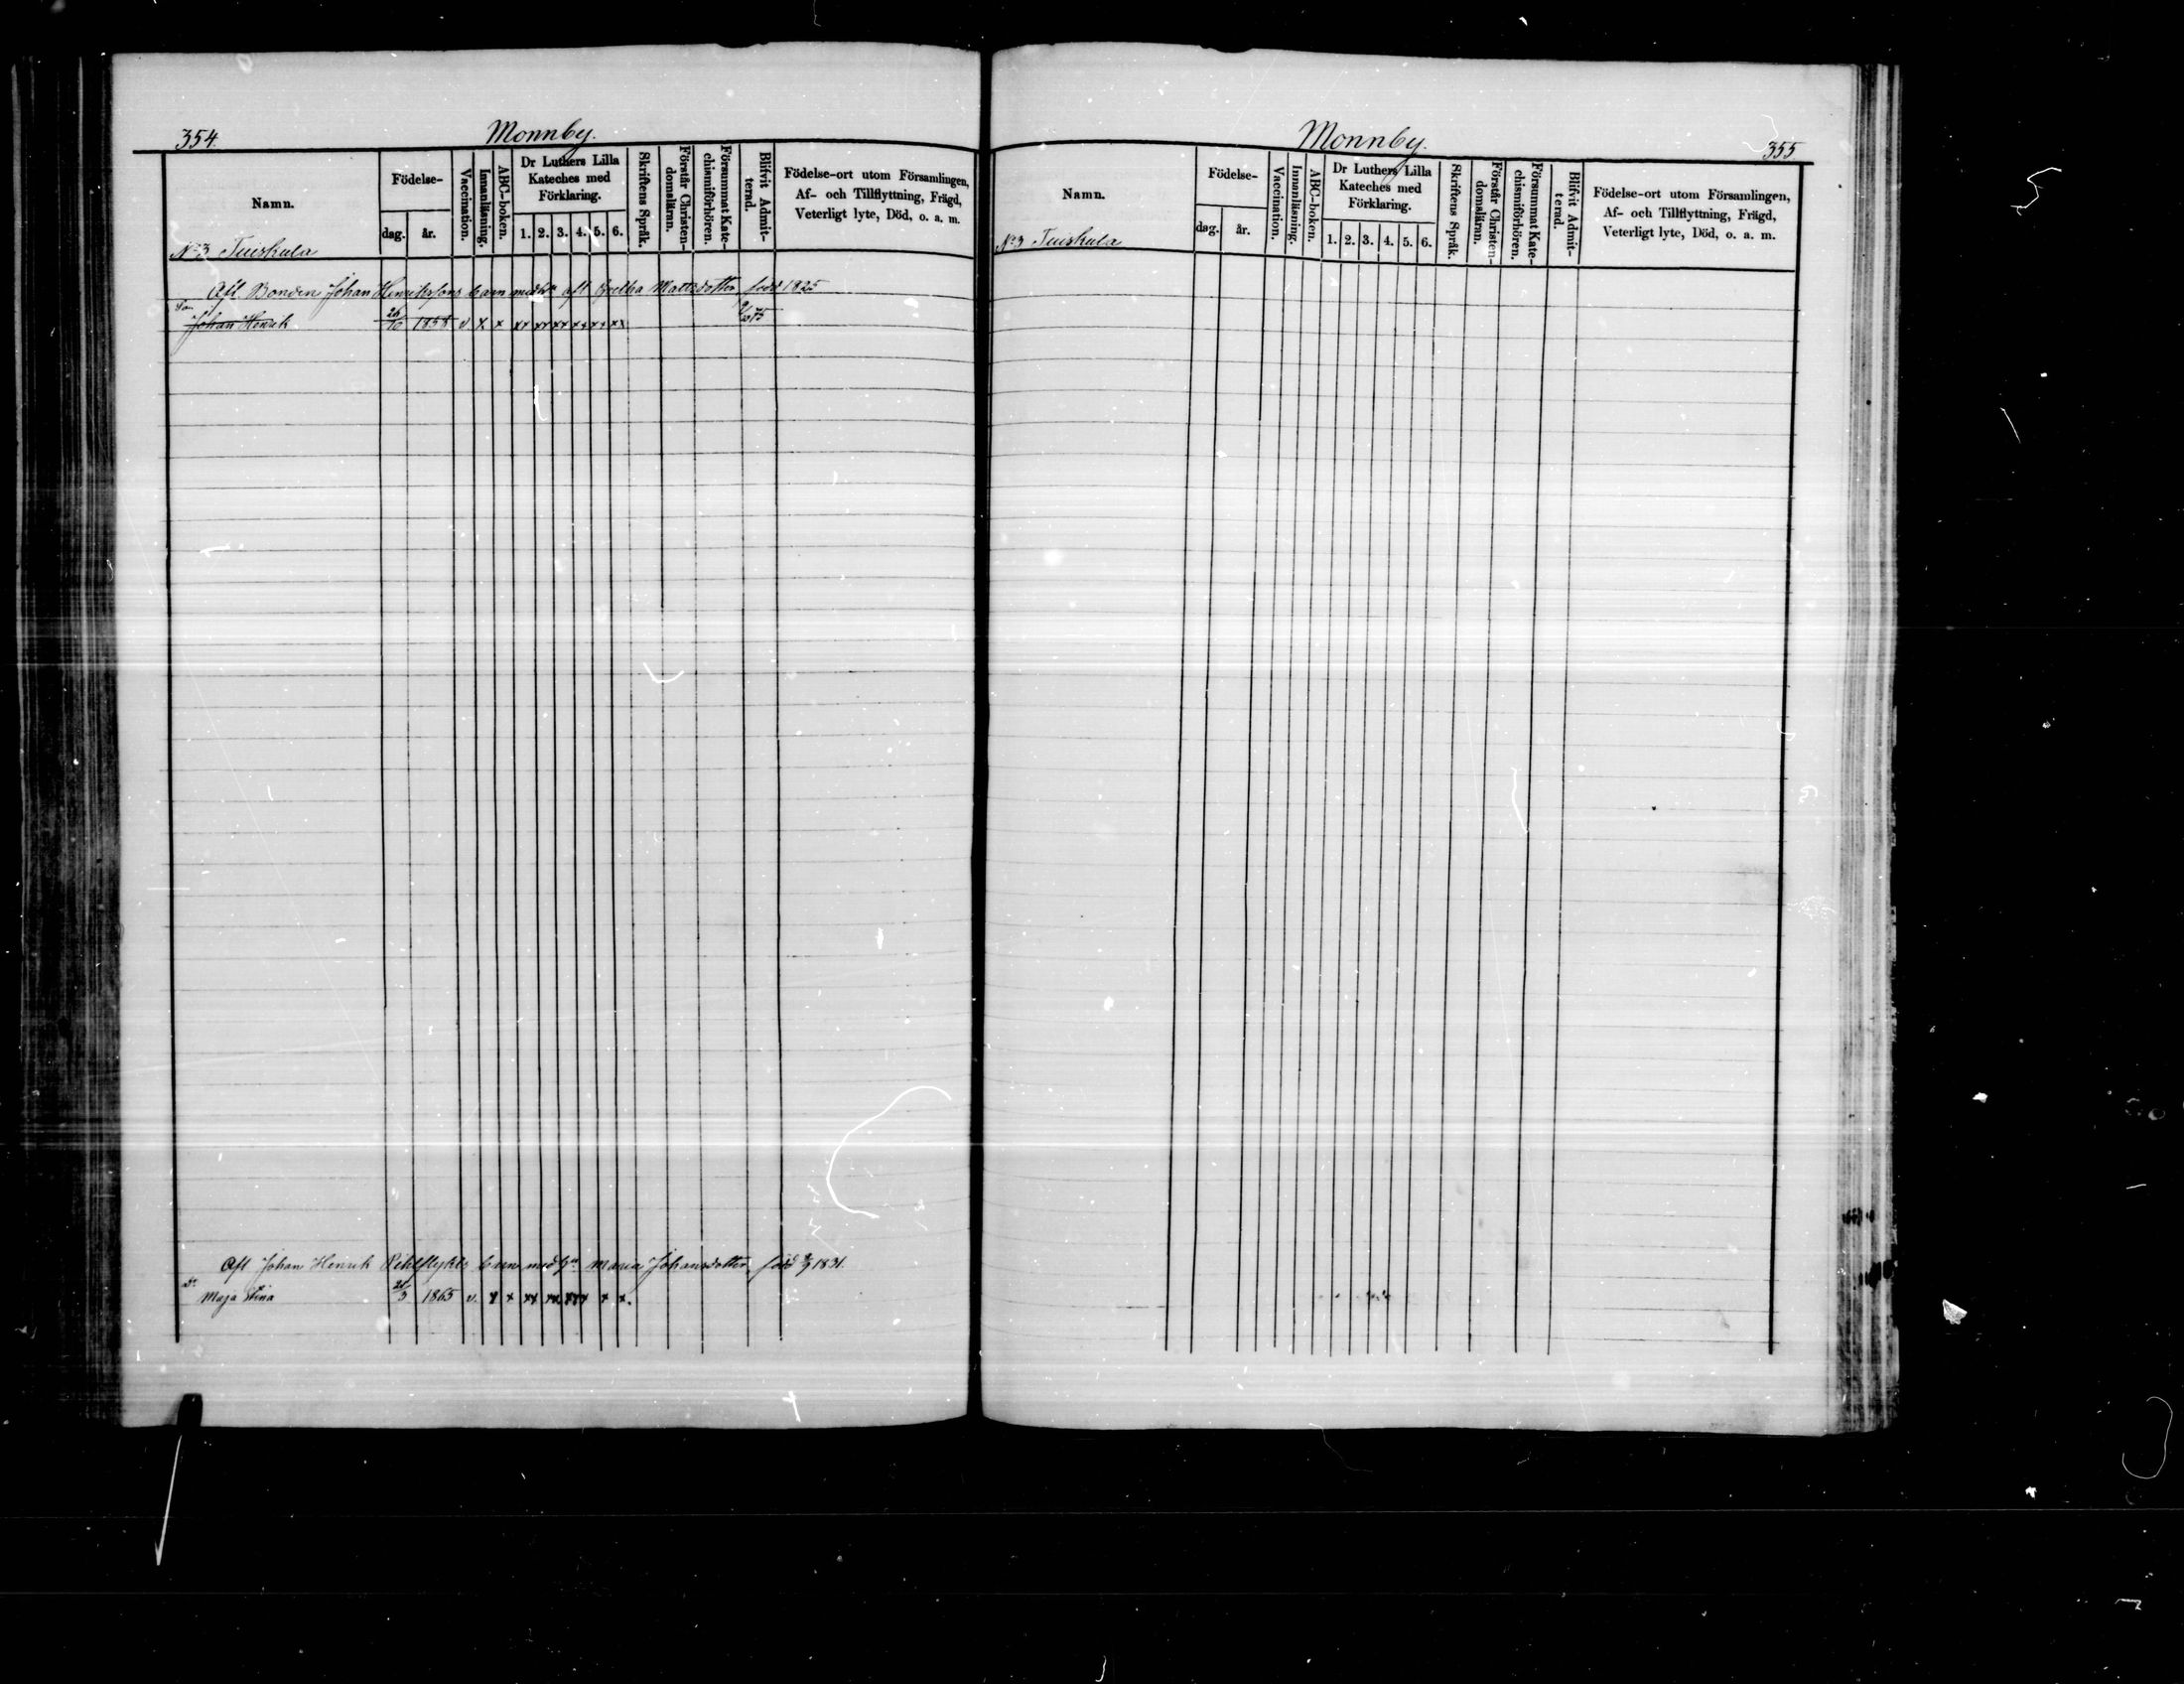 354.
Monnby.
Namn.
Födelse-
dag. år.
Vaccination.
Innanläsning.
ABC-boken.
Dr Luthers Lilla
Kateches med
Förklaring.
1. 2. 3. 4. 5. 6.
Skriftens Språk.
Förstår Christen-
domsläran.
Försummat Kate-
chismiförhören.
Blifvit Admit-
terad.
Födelse-ort utom Församlingen,
Af- och Tillflyttning, Frägd,
Veterligt lyte, Död, o. a. m.
No 3 Tuiskula
Afl. Bonden Johan Henrikssons barn med afl. Mattsdotter född 1825
Son
Johan Henrik 26/10 1858 v x x xx xx xx xx xx xx
Afl Johan Henrik barn med Maria Johansdotter född 1831.
Dr
Maja Stina 21/3 1865 v. x x xx xx xxx x x.
Monnby.
355.
Namn.
Födelse-
dag. år.
Vaccination.
Innanläsning.
ABC-boken.
Dr Luthers Lilla
Kateches med
Förklaring.
1. 2. 3. 4. 5. 6.
Skriftens Språk.
Förstår Christen-
domsläran.
Försummat Kate-
chismiförhören.
Blifvit Admit-
terad.
Födelse-ort utom Församlingen,
Af- och Tillflyttning, Frägd,
Veterligt lyte, Död, o. a. m.
No 3 Tuiskula